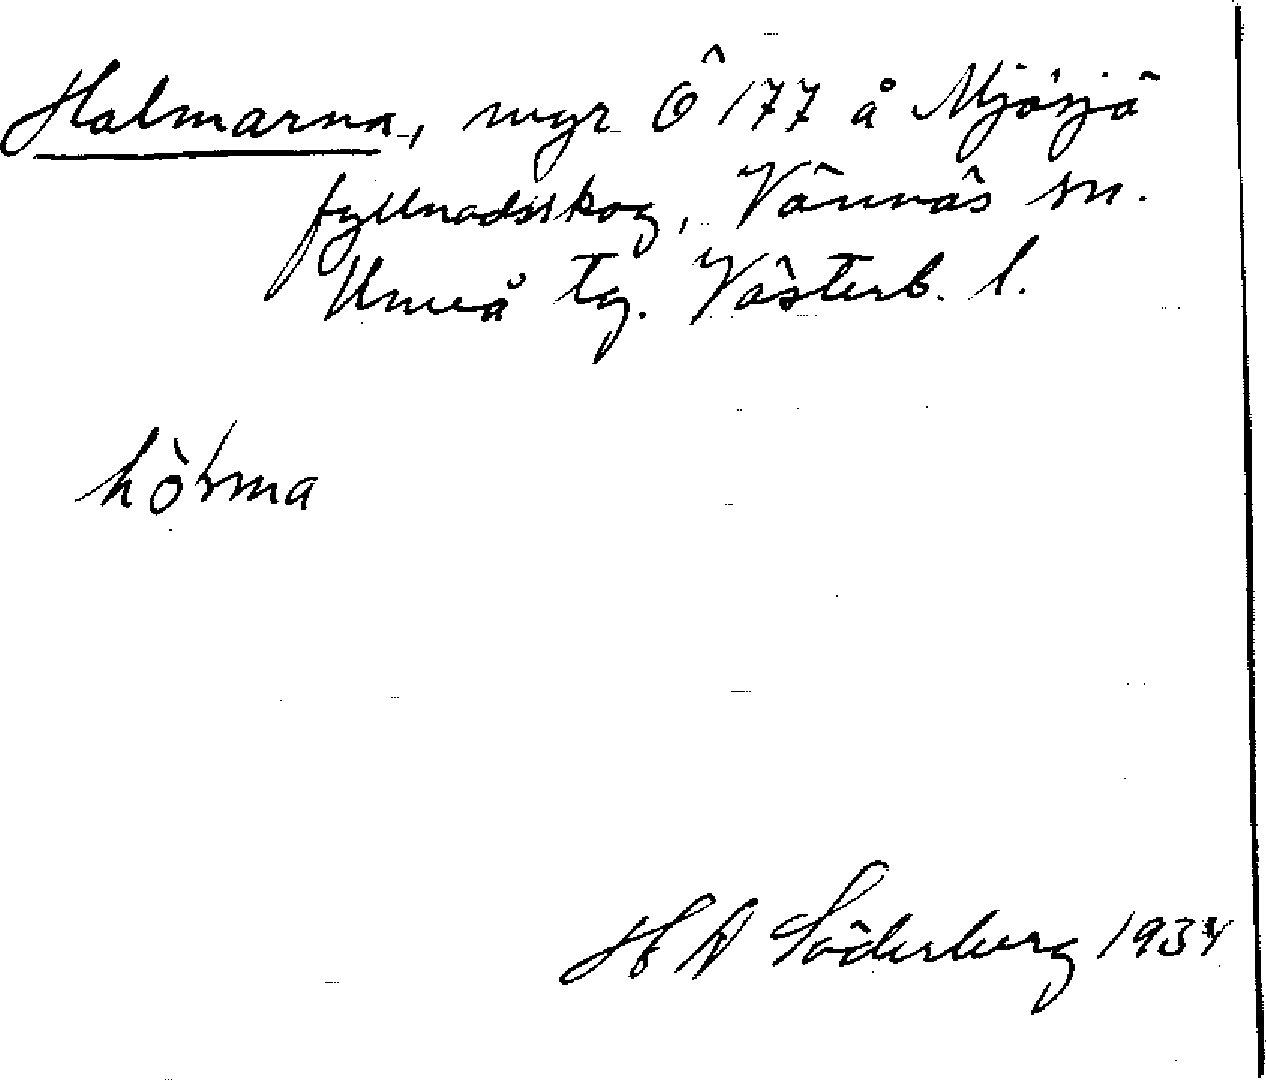 Halmarna, myr Ö 177 å Mjösjö
fyllnadsskog, Vännäs sn.
Umeå tg. Västerb. l.
H A Söderberg 1934